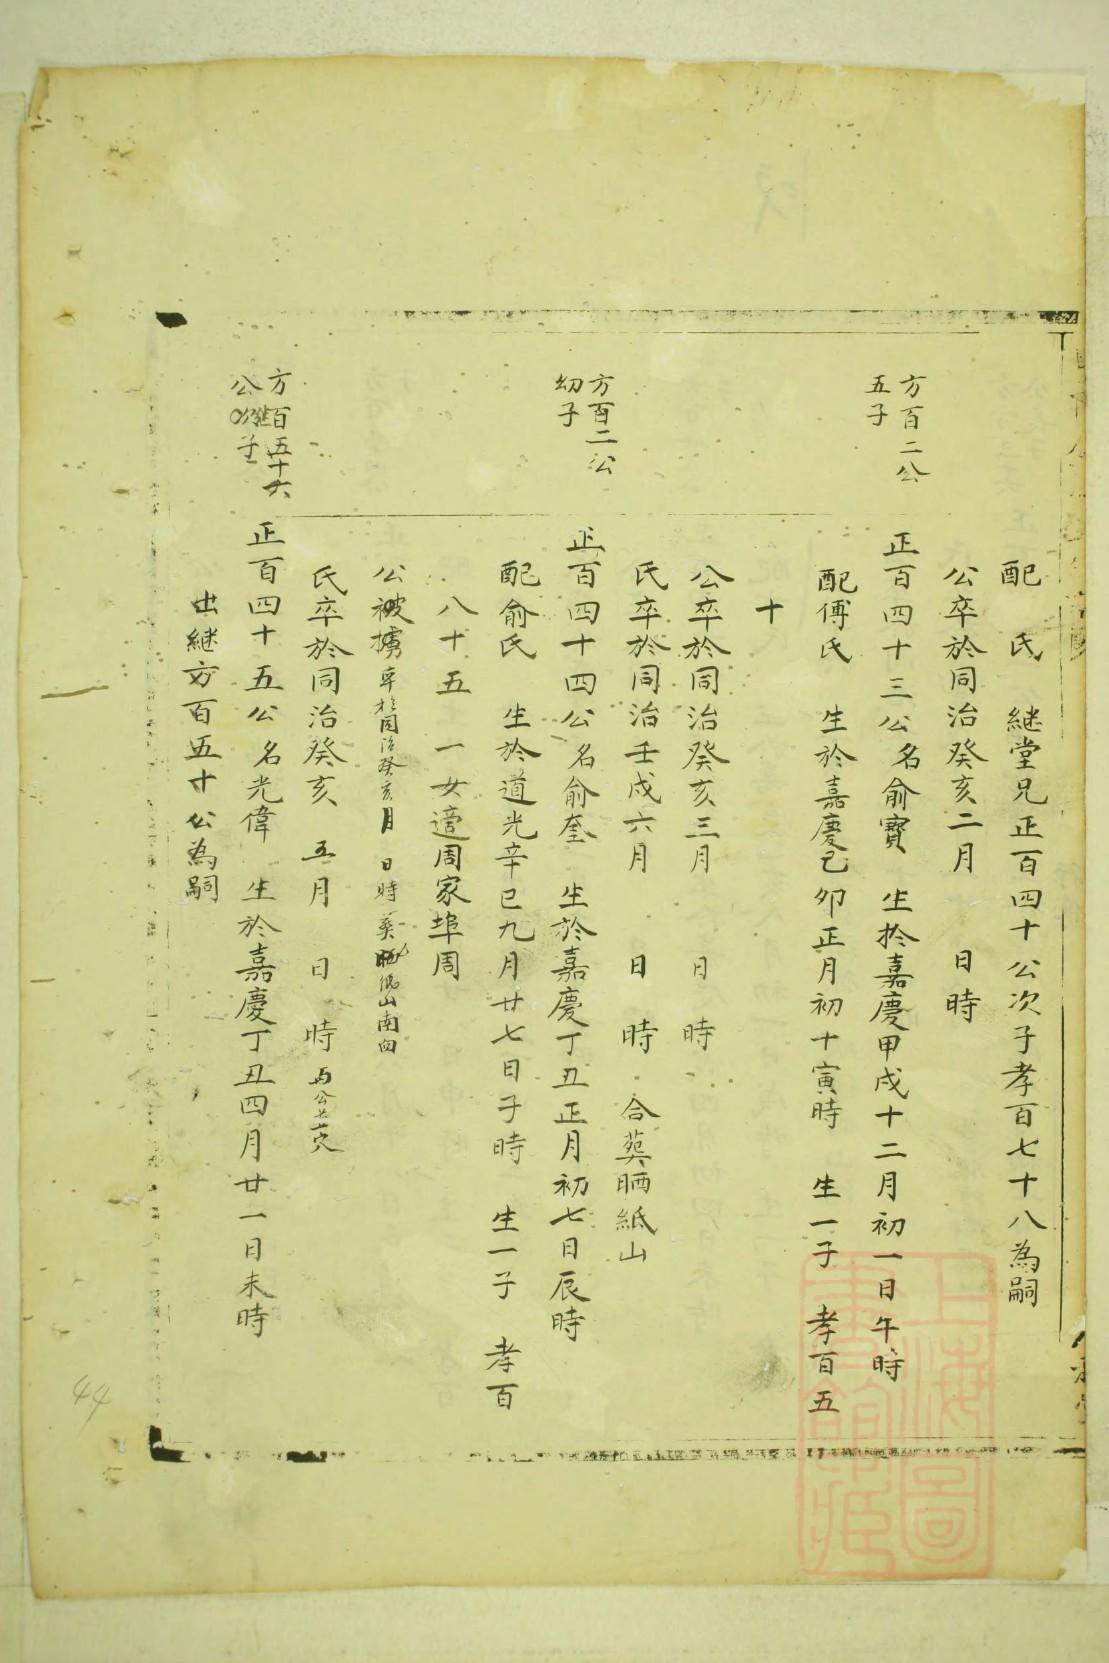 配　氏　継堂兄正百四十公次子孝百七十八為嗣
公卒於同治癸亥二月　日時
方百二公
五子
正百四十三公名俞寶　生於嘉慶甲戌十二月初一日午時
配傅氏　生於嘉慶己卯正月初十寅時　生一子　孝百五
十
公卒於同治癸亥三月　日　時
氏卒於同治壬戌六月　日　時　合葬晒紙山
方百二公
幼子
正百四十四公名俞奎　生於嘉慶丁丑正月初七日辰時
配俞氏　生於道光辛巳九月廿七日子時　生一子　孝百
八十五　一女適周家埠周
公被擄卒於同治癸亥月　日時葬晒紙山南向
氏卒於同治癸亥　五月　日　時与公共穴
方百五十六
公次子
正百四十五公　名光偉　生於嘉慶丁丑四月廿一日未時
出継方百五十公為嗣
44
上海圖
書館藏